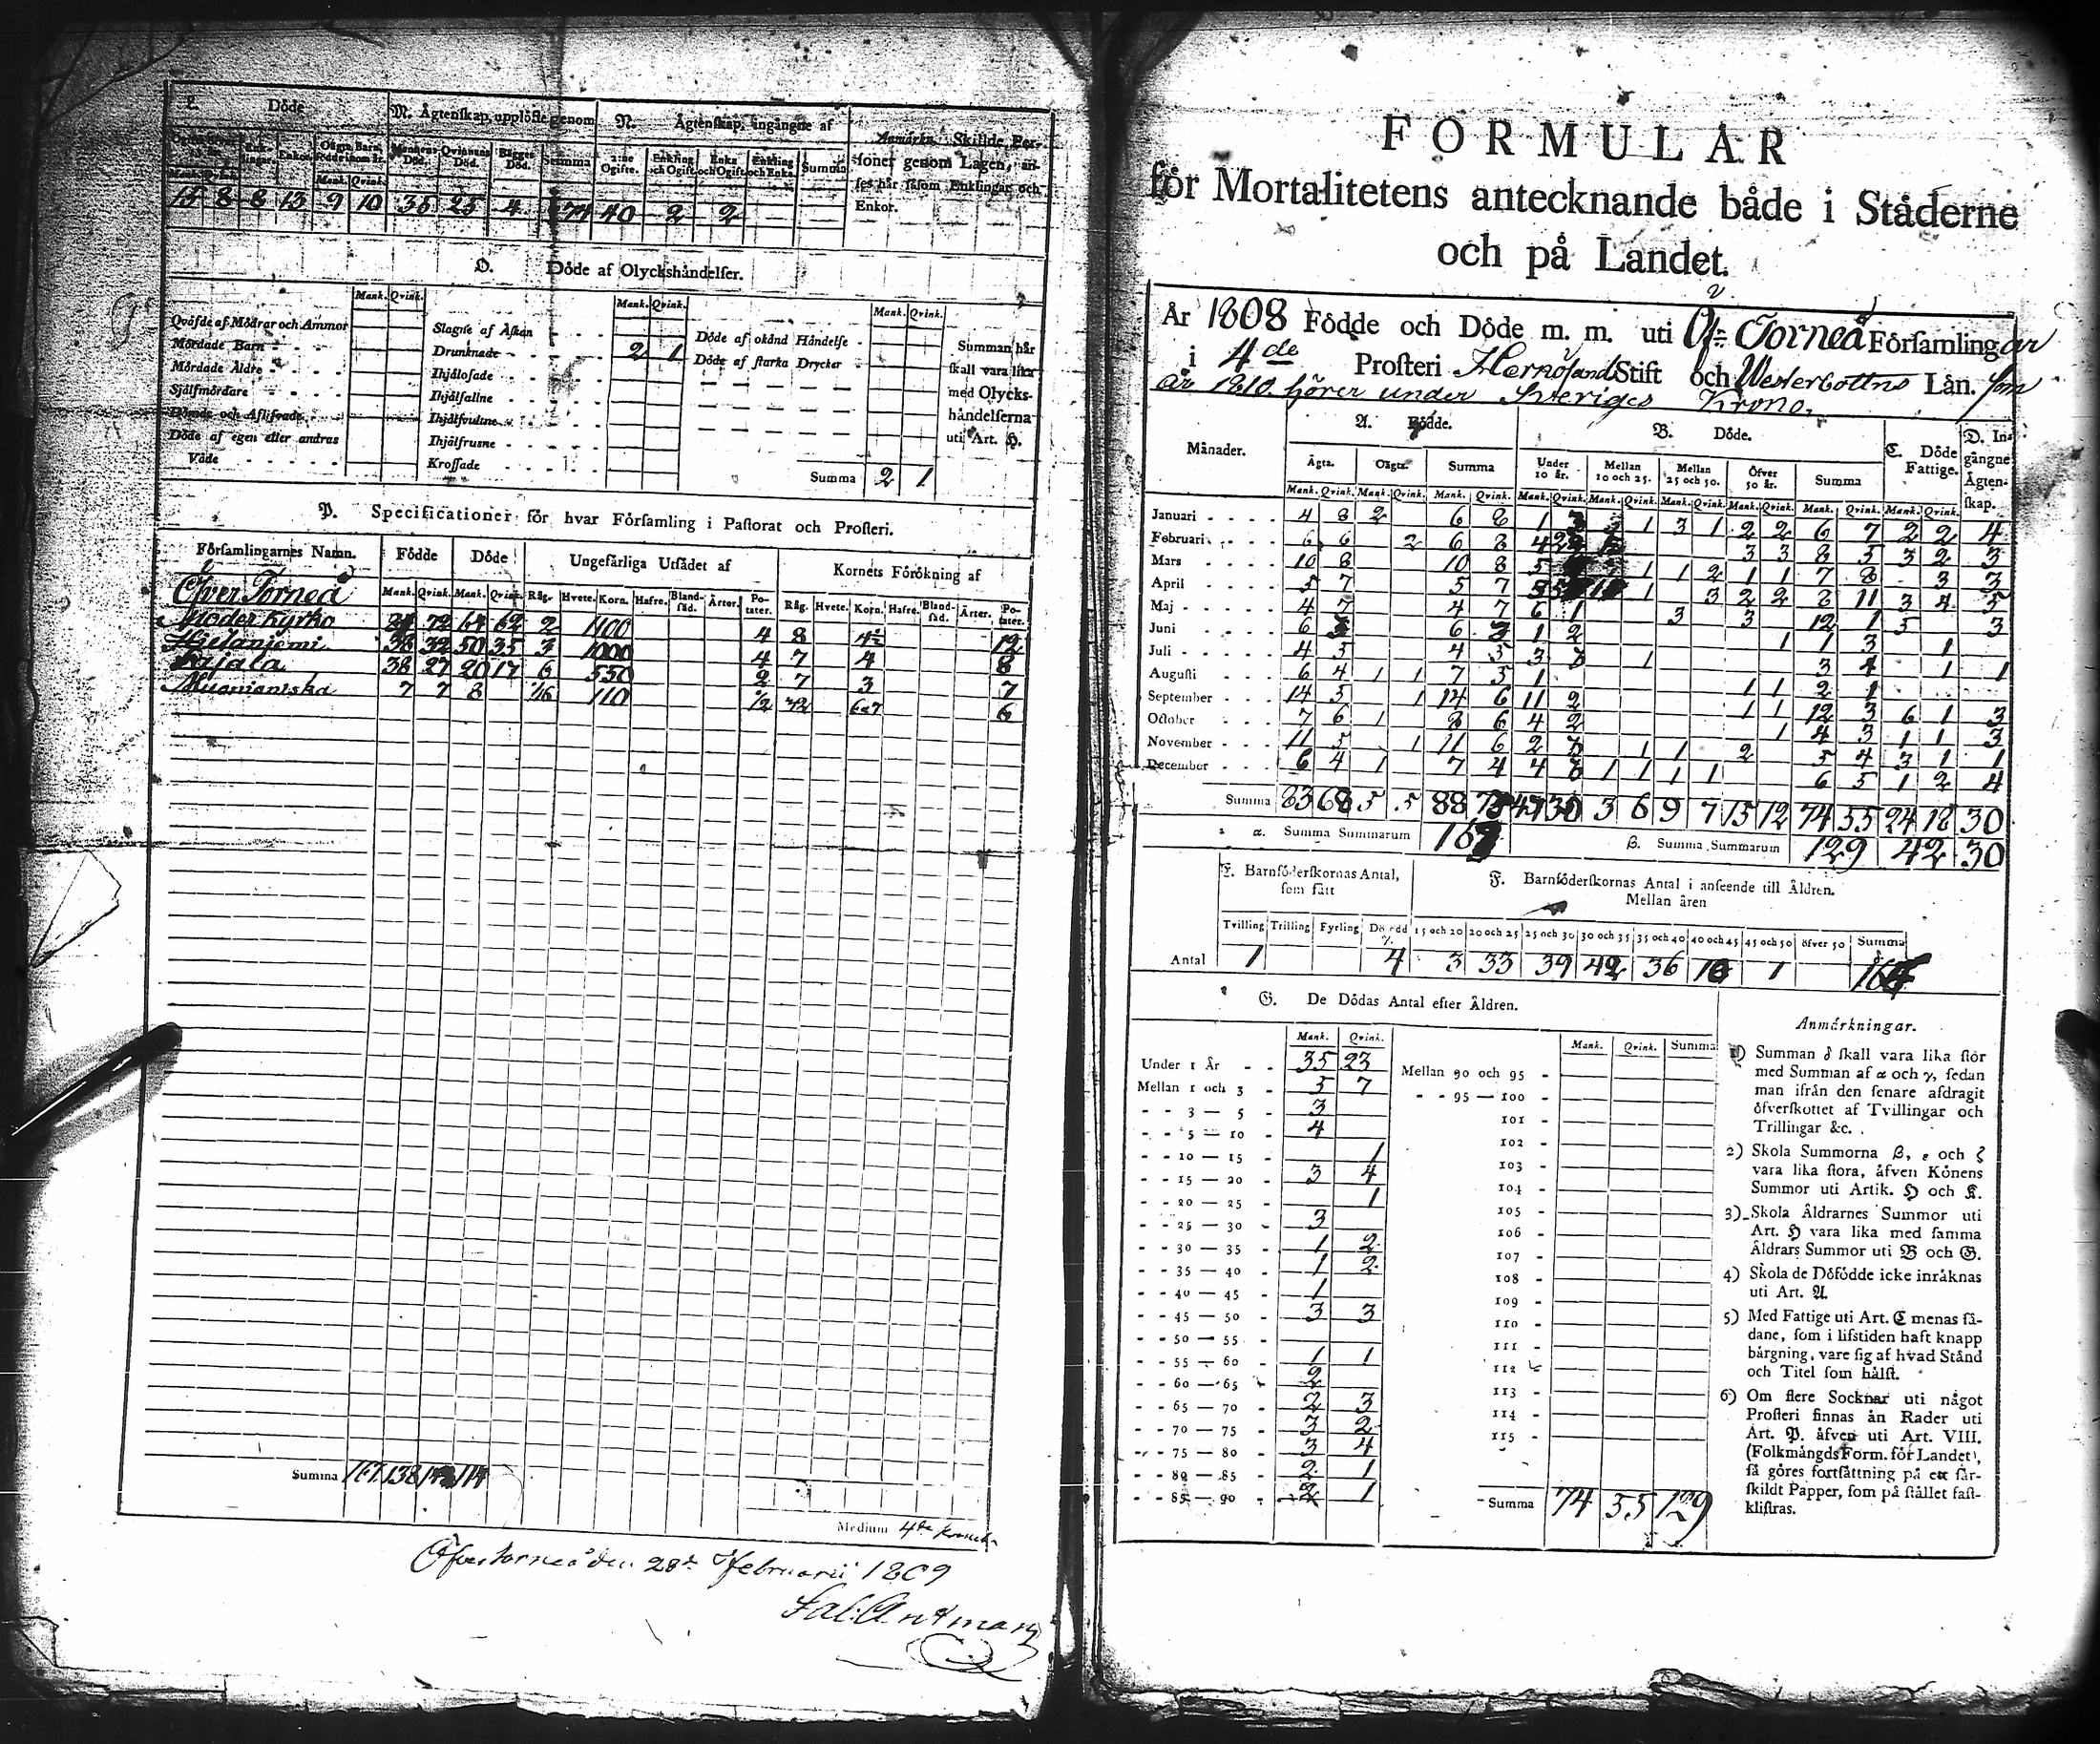 L. Döde
M. Ägtenskap, upplöste genom
N. Ägtenskap, ingångne af
Anmärkn. Skillde Per-
soner genom Lagen, an-
ses här såsom Enklingar och
Enkor.
Enkor.
Oägta Barn,
Mannens Död.
Qvinnans Död.
Summa
2:ne Ogifte.
Enkling och Ogift
Enka och Ogift
Enkling och Enka
Summa
Mank. Qvink. Mank. Qvink.
15 8 8 13 9 10 35 25 4 40 2 2
O. Döde af Olyckshändelser.
Mank. Qvink. Mank. Qvink. Mank. Qvink.
Qväfde af Mödrar och Ammor
Mördade Barn
Mördade Äldre
Självmördare
Dömde och Aflifvade
Döde af egen eller andras
Våde
Slagne af Åskan
Drunknade 2 1
Ihjälosade
Ihjälfallne
Ihjälfrusne
Krossade
Döde af okänd Händelse
Döde af starka Drycker
Summa 2 1
Summan här
skall vara lika
med Olycks-
händelserna
uti Art. H.
P. Specificationer för hvar Församling i Pastorat och Prosteri.
Församlingarnes Namn. Födde Döde Ungefärliga Utsädet af Kornets Förökning af
Mank. Qvink. Mank. Qvink. Råg. Hvete. Korn. Hafre. Bland-säd. Ärter. Po-tater. Råg. Hvete. Korn. Hafre. Bland-säd. Ärter. Po-tater.
Öfver Torneå
Moder Kyrko 72 64 62 2 1100 4 8 4½ 12
Hietaniemi 38 32 50 35 3 1000 4 7 4 8
Kajala 38 27 20 17 6 550 2 7 3 7
Muonioniska 7 7 8 1/16 110 1/2 6
Summa 138
Medium 4de
Öfvertorneå den 28de Februarii 1809
Sal: Antman
FORMULÄR
för Mortalitetens antecknande både i Städerne
och på Landet.
År 1808 Födde och Döde m. m. uti Öf: Torneå Församlingar
i 4de Prosteri Hernösands Stift och Westerbottns Län. som
år 1810. hörer under Sveriges Krono.
Månader. A. Födde. B. Döde. C. Döde Fattige. D. In-gångne Ägten-skap.
Ägta. Oägta. Summa Under 10 år. Mellan 10 och 25. Mellan 25 och 50. Öfver 50 år. Summa
Mank. Qvink. Mank. Qvink. Mank. Qvink. Mank. Qvink. Mank. Qvink. Mank. Qvink. Mank. Qvink. Mank. Qvink. Mank. Qvink.
Januari 4 8 2 6 8 1 3 1 3 1 2 2 6 7 2 2 4
Februari 6 6 2 6 8 4 3 3 8 5 3 2 3
Mars 10 8 10 8 5 1 1 2 1 1 7 8 3 3
April 5 7 5 7 1 3 2 2 8 11 3 4 5
Maj 4 7 4 7 6 1 3 3 12 1 5 3
Juni 6 6 1 2 1 1 3 1
Juli 4 5 4 5 3 1 3 4 1 1
Augusti 6 4 1 1 7 5 1 1 1 2 1
September 14 5 1 14 6 11 2 1 1 12 3 6 1 3
October 7 6 1 8 6 4 2 1 4 3 1 1 3
November 11 5 1 11 6 2 1 1 2 5 4 3 1 1
December 6 4 1 7 4 4 1 1 1 1 6 5 1 2 4
Summa 83 68 5 5 88 47 30 3 6 9 7 15 12 74 55 24 18 30
α. Summa Summarum β. Summa Summarum 129 42 30
E. Barnföderskornas Antal,
som fått
F. Barnföderskornas Antal i anseende till Åldren.
Mellan åren
Tvilling Trilling Fyrling Döfödd 15 och 20 20 och 25 25 och 30 30 och 35 35 och 40 40 och 45 45 och 50 öfver 50 Summa
Antal 1 4 3 33 39 42 36 1
G. De Dödas Antal efter Åldren.
Mank. Qvink. Mank. Qvink. Summa
Under 1 År 35 23
Mellan 1 och 3 5 7
3 — 5 3
5 — 10 4
10 — 15 1
15 — 20 3 4
20 — 25 1
25 — 30 3
30 — 35 1 2
35 — 40 1 2
40 — 45 1
45 — 50 3 3
50 — 55
55 — 60 1 1
60 — 65 2
65 — 70 2 3
70 — 75 3 2
75 — 80 3 4
80 — 85 2 1
85 — 90 2 1
Mellan 90 och 95
95 — 100
101
102
103
104
105
106
107
108
109
110
111
112
113
114
115
Summa 74 55 129
Anmärkningar.
1) Summan δ skall vara lika stor
med Summan af α och γ, sedan
man ifrån den senare afdragit
öfverskottet af Tvillingar och
Trillingar &c.
2) Skola Summorna β, ε och ζ
vara lika stora, äfven Könens
Summor uti Artik. H och K.
3) Skola Åldrarnes Summor uti
Art. H vara lika med samma
Åldrars Summor uti B och G.
4) Skola de Döfödde icke inräknas
uti Art. A.
5) Med Fattige uti Art. C menas så-
dane, som i lifstiden haft knapp
bärgning, vare sig af hvad Stånd
och Titel som hälst.
6) Om flere Socknar uti något
Prosteri finnas än Rader uti
Art. P. äfven uti Art. VIII.
(Folkmängds Form. för Landet),
så göres fortsättning på ett sär-
skildt Papper, som på stället fast-
klistras.